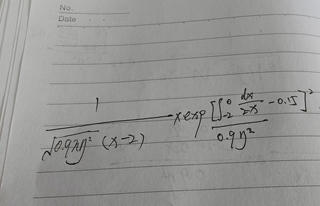 No.
Date
1 / √0.9πη² (x-2) × exp [∫₋₂⁰ dx/2x - 0.15]² / 0.9η²